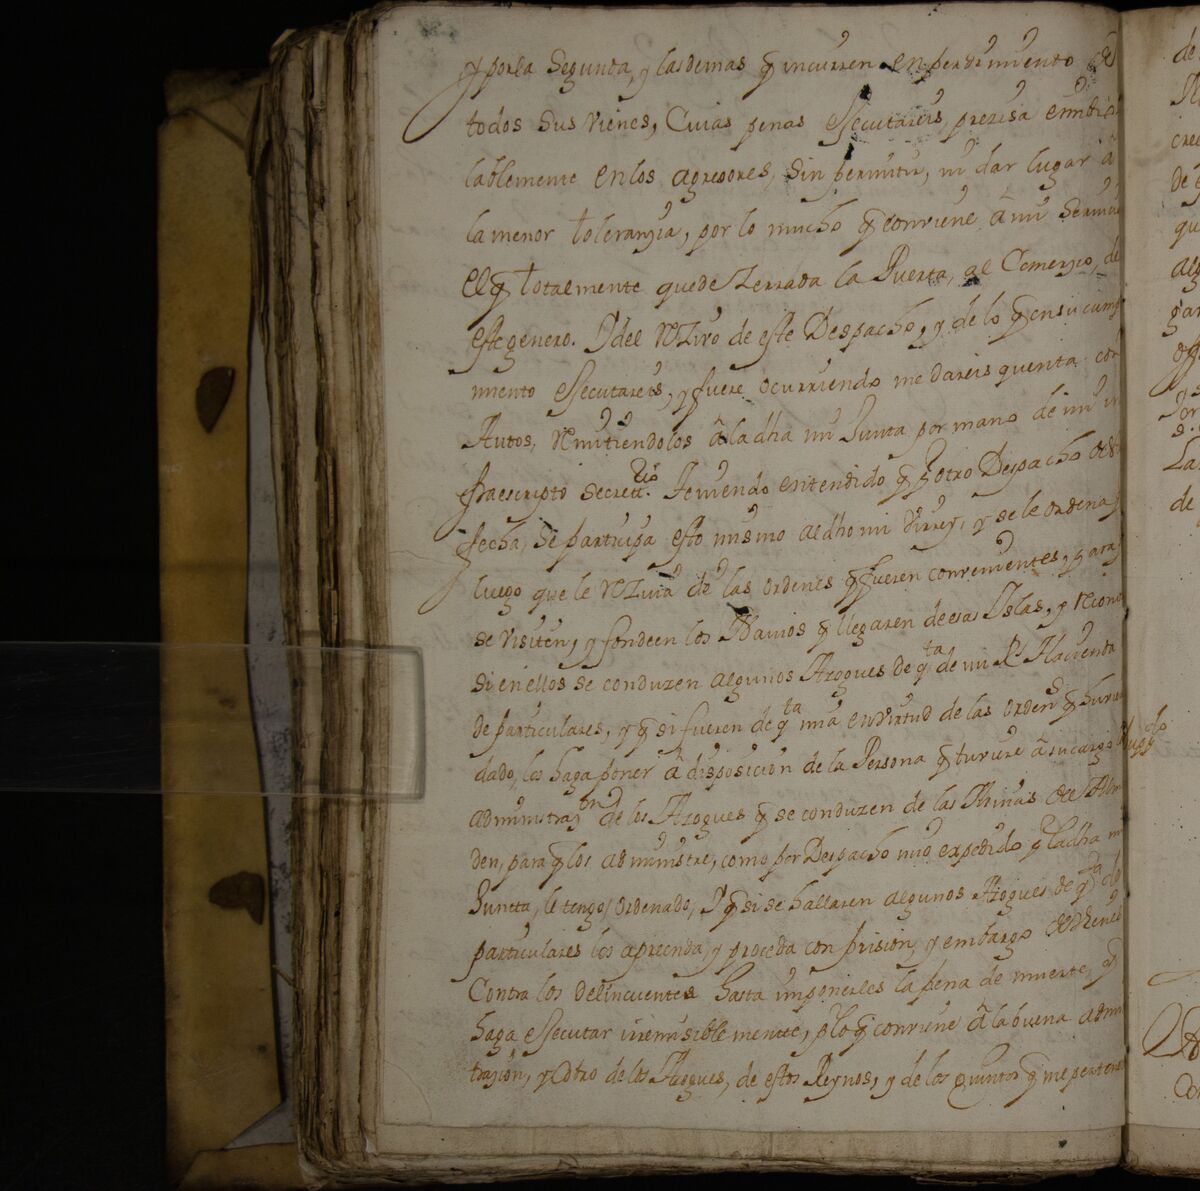 y por la Segunda, y las demas q̃ incurren en perdimiento de
todos sus vienes, Cuias penas esecutareis preçisa e imbio
lablemente en los agresores, sin permitir, ni dar lugar à
la menor toleranzia, por lo mucho q̃ conviene à mi Servi
el q̃ totalmente quede zerrada la Puerta, al Comerzio, de
este genero. Y del rezivo de este Despacho, y de lo q̃ en su cump
miento esecutareis, y fuere ocurriendo me dareis quenta con
Autos, remitiendolos à la dha mi Junta por mano de mi in
fraescripto secret.rio Teniendo entendido q̃ por otro Despacho de
fecha, se partizipa esto mismo al dho mi Virrey, y se le ordena
luego que le reziva de las ordenes q̃ fueren convenientes, para
se visiten, y fondeen los Navios q̃ llegaren de esas Islas, y recono
si en ellos se conduzen algunos Azogues de q.ta de mi Rl Hacienda
de particulares, y q̃ si fueren de q.ta mia en virtud de las ordens q̃ huvie
dado, los haga poner à disposicion de la Persona q̃ tuviere à su cargo
administraz.on de los Azogues q̃ se conduzen de las Minas de Alm
den, para q̃ los administre, como por Despacho mio expedido por la dha mi
Junta, le tengo ordenado, Y q̃ si se hallaren algunos Azogues de q.ta de
particulares los aprenda, y proceda con prision, y embargo de vienes
Contra los delincuentes hasta imponerles la pena de muerte, q̃
haga esecutar irremisiblemente, por lo q̃ conviene à la buena admi
trazion, y cobro de los Azogues, de estos Reynos, y de los quintos q̃ me pertene